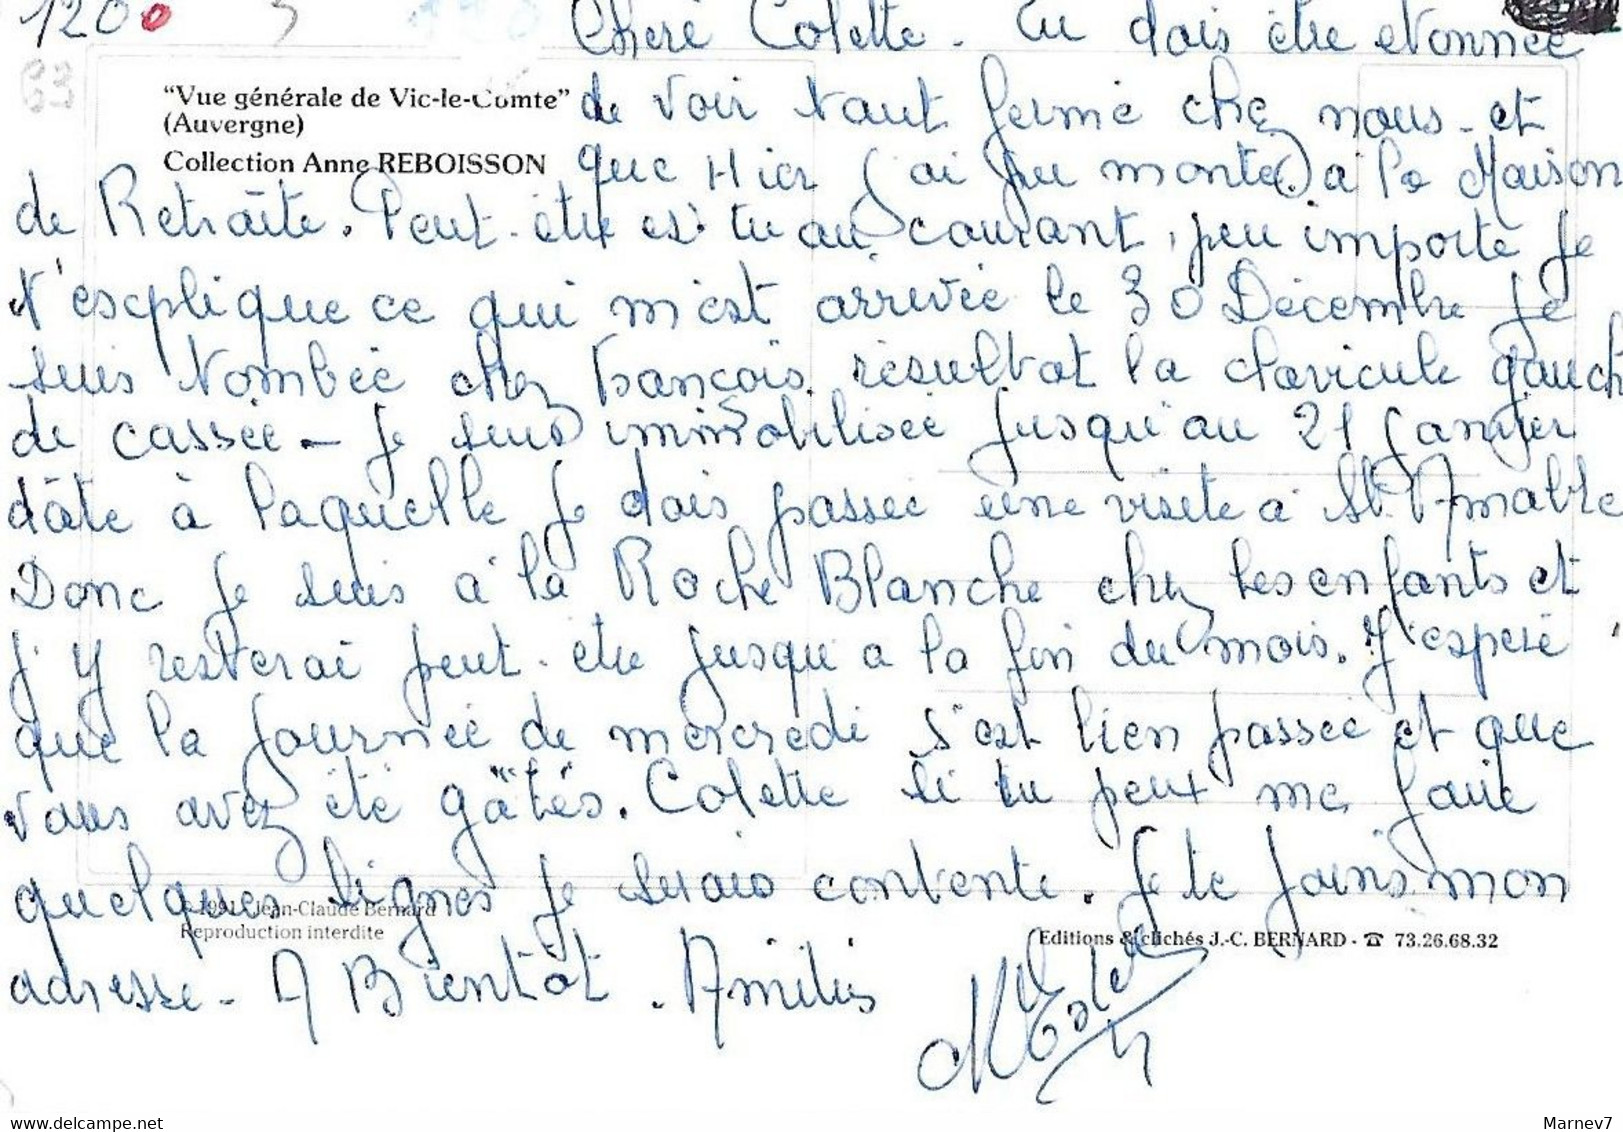 1200
63
Chère Colette. Tu dois être etonnée
"Vue générale de Vic-le-Comte"
(Auvergne)
Collection Anne REBOISSON
de voir tout fermé chez nous et
que Hier j'ai pu monter à la Maison
de Retraîte. Peut-être es tu au courant, peu importe Je
t'esplique ce qui m'est arrivée le 30 Décembre Je
suis tombée chez François résultat la clavicule gauch
de cassée - Je suis immobilisée jusqu'au 21 Janvier
dâte à laquelle je dois passée une visite à St. Amable
Donc je suis à la Roche Blanche chez les enfants et
j'y resterai peut-être jusqu'a la fin du mois. J'espere
que la journée de mercredi s'est bien passée et que
vous avez été gâtés. Colette si tu peux me faire
quelques lignes je serais contente. Je te joins mon
adresse - A Bientôt. Amitiés
© 1991 Jean-Claude Bernard
Reproduction interdite
Editions & clichés J.-C. BERNARD - ☎ 73.26.68.32
delcampe.net
Marnev7